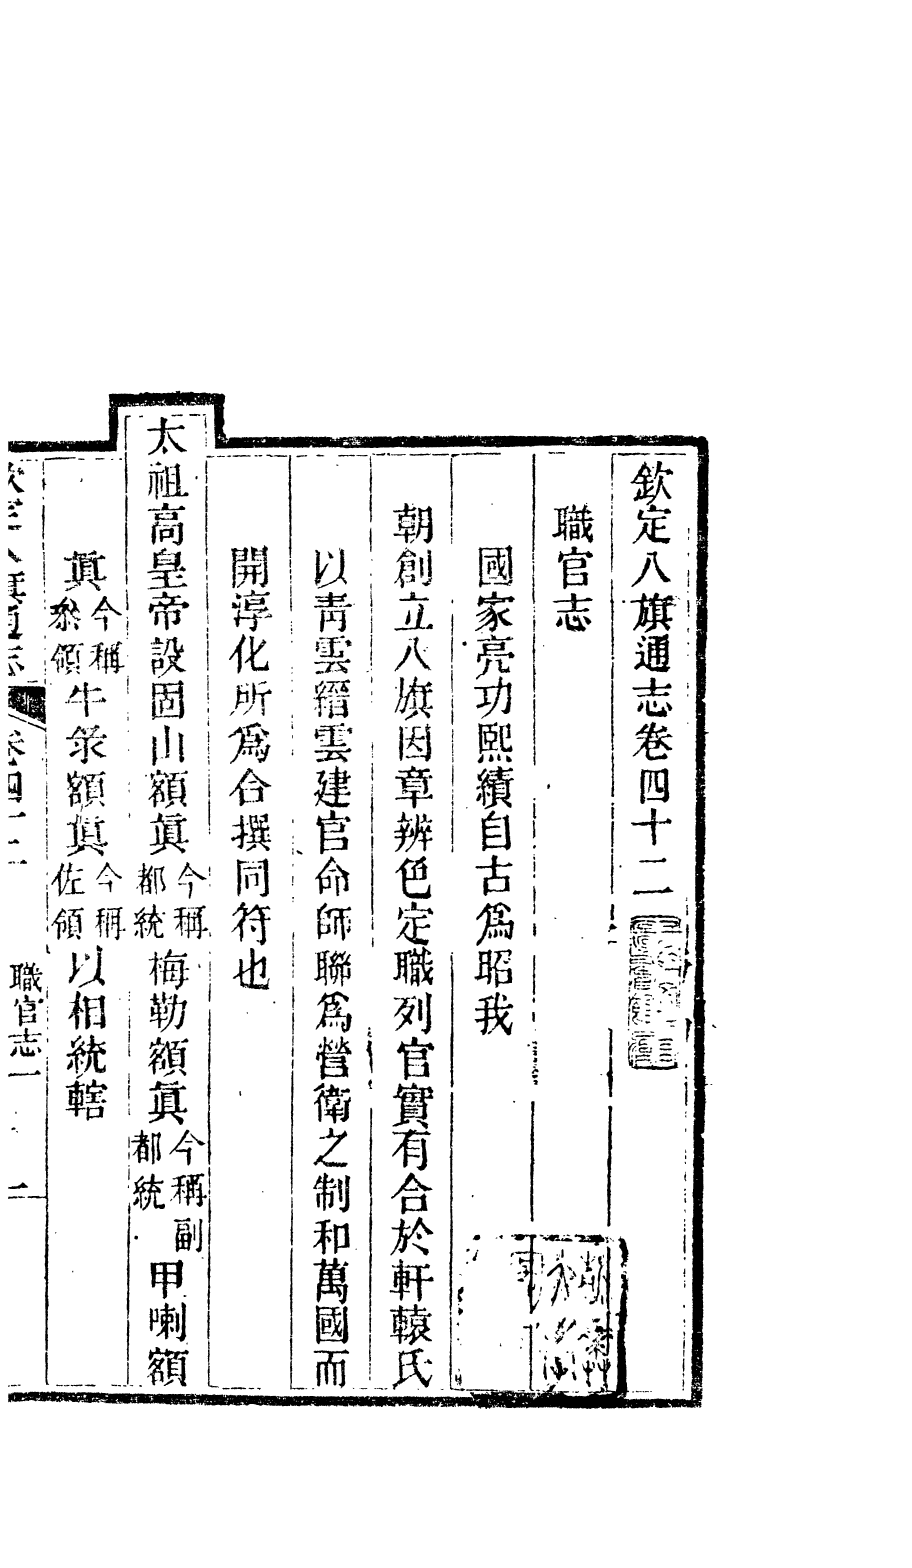 欽定八旗通志卷四十二
職官志
國家亮功熙績自古爲昭我
朝創立八旗因章辨色定職列官實有合於軒轅氏
以靑雲縉雲建官命師聯爲營衛之制和萬國而
開淳化所爲合撰同符也
太祖高皇帝設固山額眞今稱都統梅勒額眞今稱副都統甲喇額
眞今稱叅領牛彔額眞今稱佐領以相統轄
欽定八旗通志
卷四十二
職官志一
一